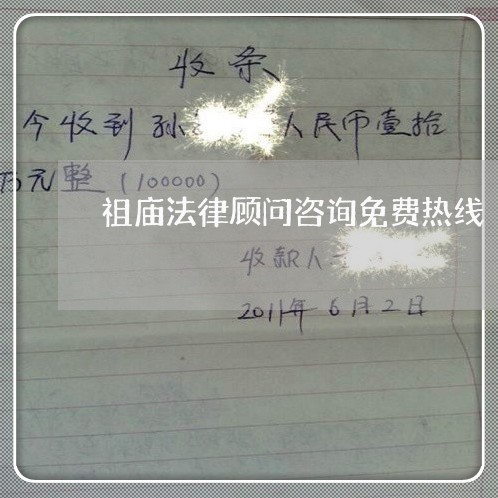 收条
今收到孙 人民币壹拾
万元整(100000)
祖庙法律顾问咨询免费热线
收款人
2011年6月2日